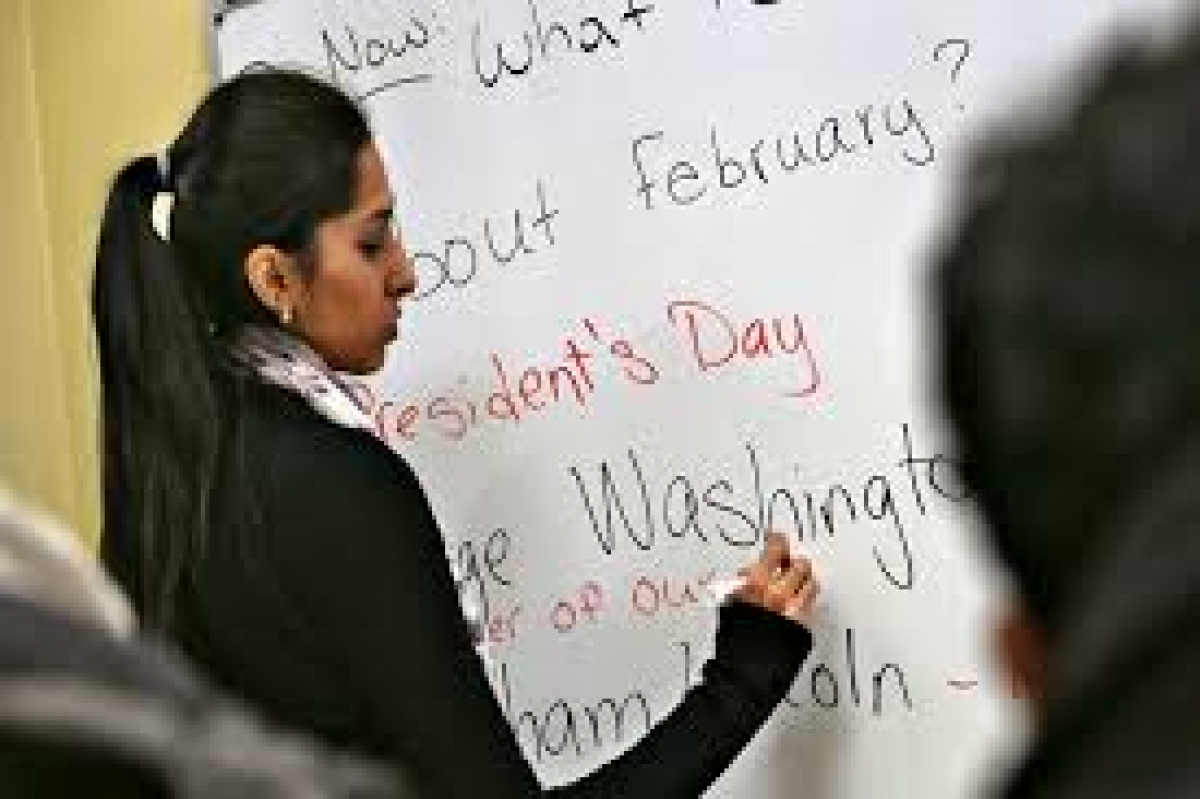 Now: What
out February?
President's Day
ge Washingto
er of our
ham coln -